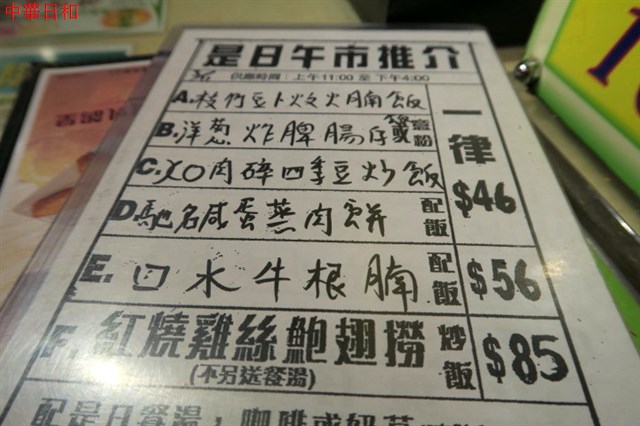 中華日和
是日午市推介
供應時間：上午11:00 至 下午4:00
A.枝竹豆卜炆火腩飯
B.洋葱炸脾腸仔
C.肉碎四季豆炒飯
一律
$46
D.馳名咸蛋蒸肉餅 配飯
E.口水牛根腩 配飯 $56
F.紅燒雞絲鮑翅撈 炒飯 $85
(不另送餐湯)
配是日餐湯，咖啡或奶茶